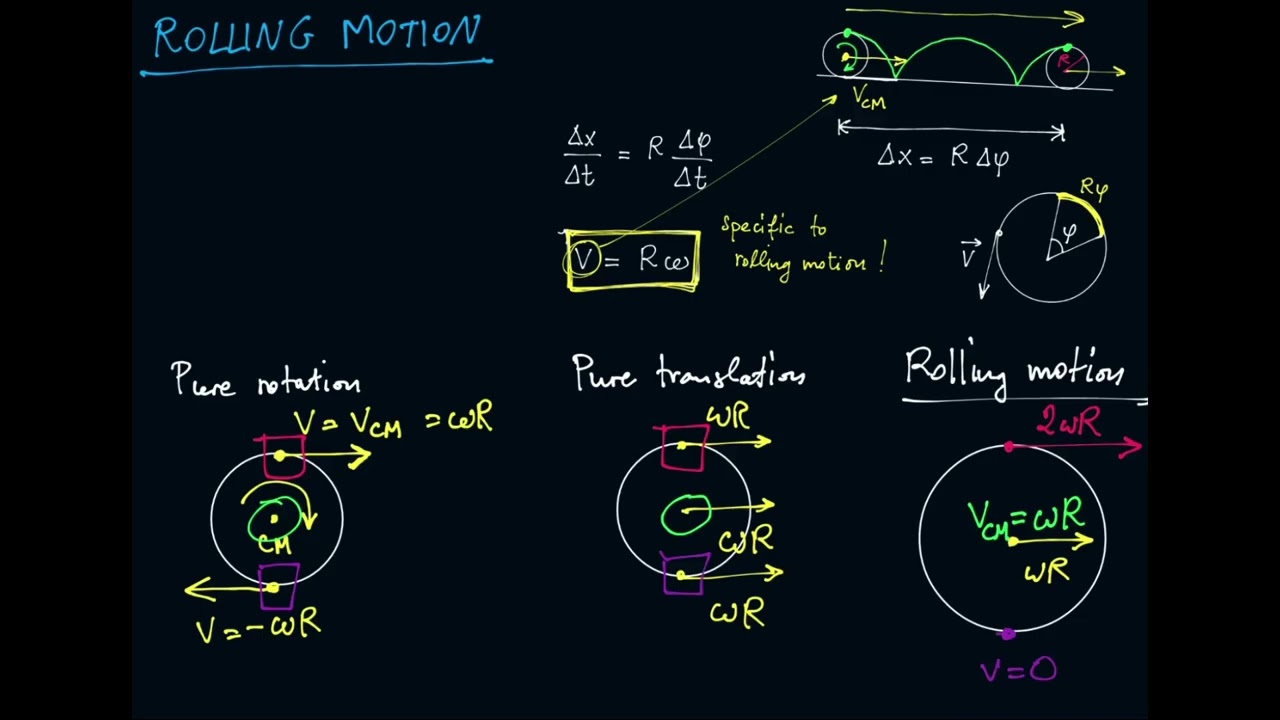 ROLLING MOTION
R
V_CM
Δx = R Δφ
Δx/Δt = R Δφ/Δt
V = Rω
specific to
rolling motion!
Rφ
φ
V⃗
Pure rotation
V = V_CM = ωR
CM
V = -ωR
Pure translation
ωR
ωR
ωR
Rolling motion
2ωR
V_CM = ωR
ωR
V = 0